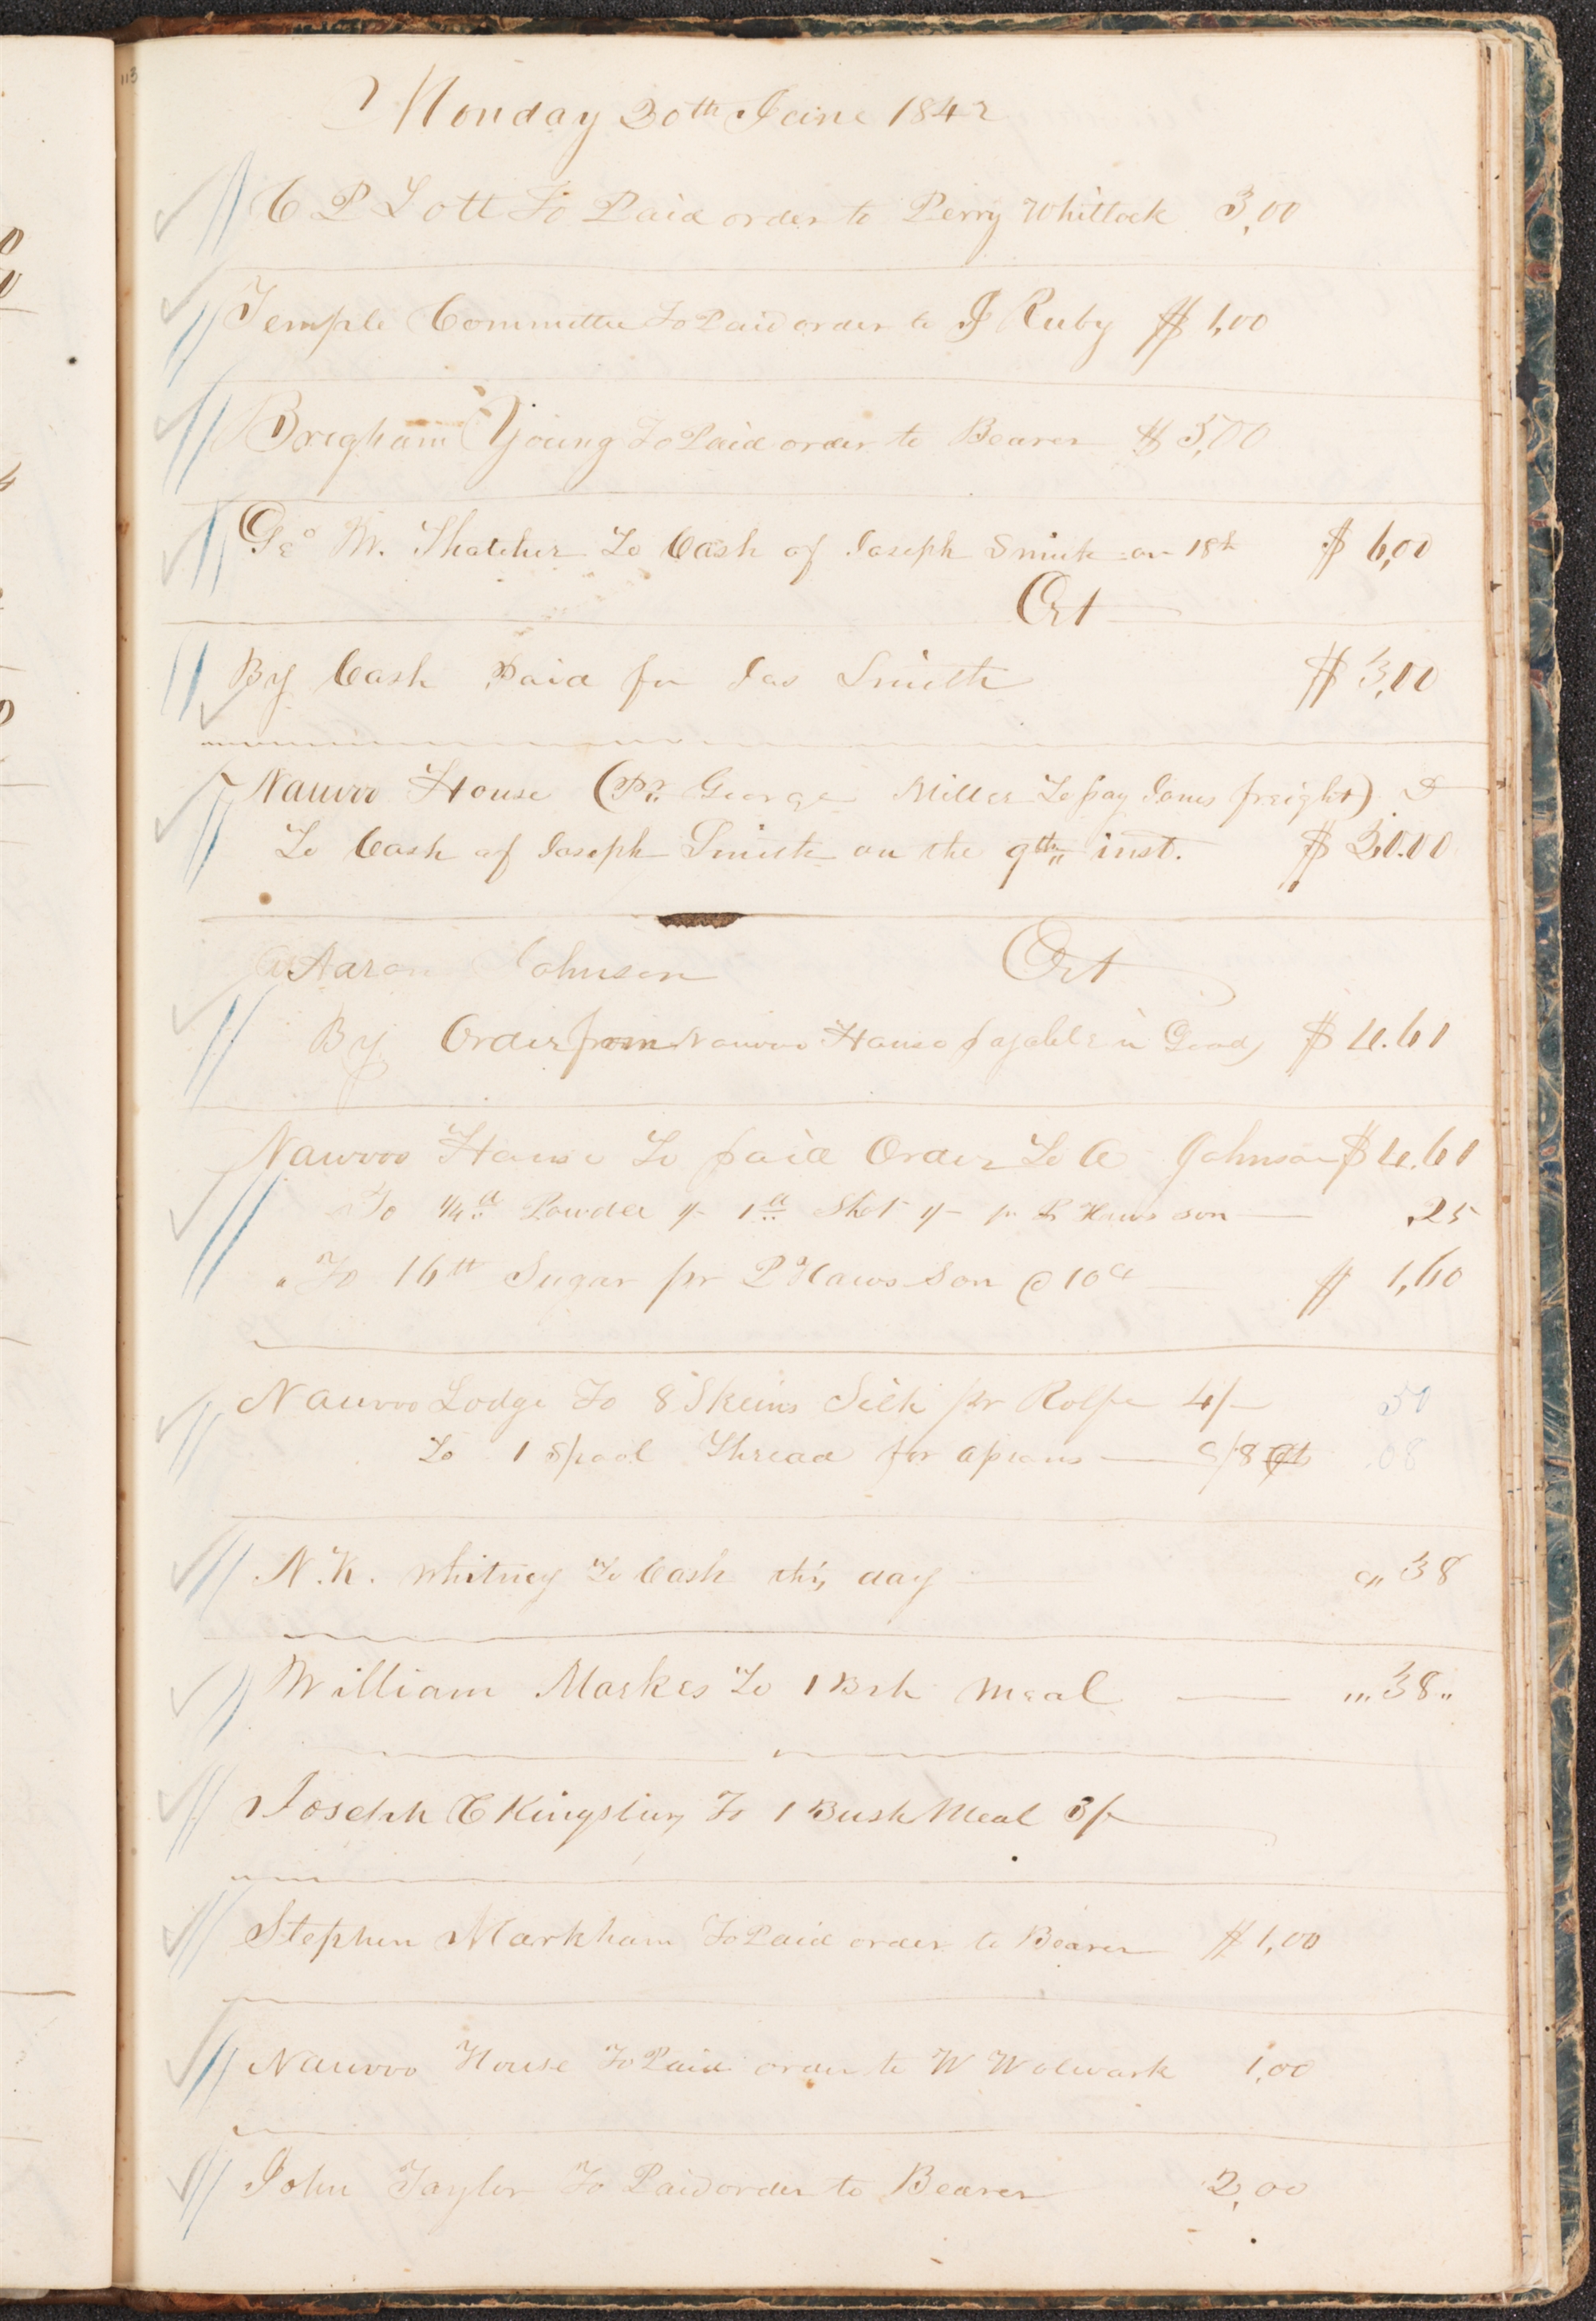 113
Monday 20th June 1842
C P Lott To Paid order to Perry Whitlock 3,00
Temple Committee To Paid order to J Ruby $ 1,00
Brigham Young To Paid order to Bearer $ 5,00
Geo W. Thatcher To Cash of Joseph Smith on 18th $ 6,00
Crt
By Cash Paid for Jas Smith $ 3,00
Nauvoo House (Pr. George Miller To pay Jones freight) Dr
To Cash of Joseph Smith on the 9th inst. $ 30.00
Aaron Johnson Crt
By Order from Nauvoo House payable in Goods $ 4.61
Nauvoo House To paid Order To A Johnson $ 4.61
To 1/4 lb Powder 1/- 1 lb Shot 1/- pr P Haws son ,25
" To 16 lb Sugar pr P Haws Son @ 10c $ 1,60
Nauvoo Lodge To 8 Skeins Silk pr Rolfe 4/- 50
To 1 Spool Thread for aprons 8 .08
N. K. Whitney To Cash this day "38
William Markes To 1 Bsh Meal "'38"
Joseph C Kingsbury To 1 Bush Meal 3/-
Stephen Markham To Paid order to Bearer $ 1,00
Nauvoo House To Paid order to W Walwark 1,00
John Taylor To Paid order to Bearer 2,00